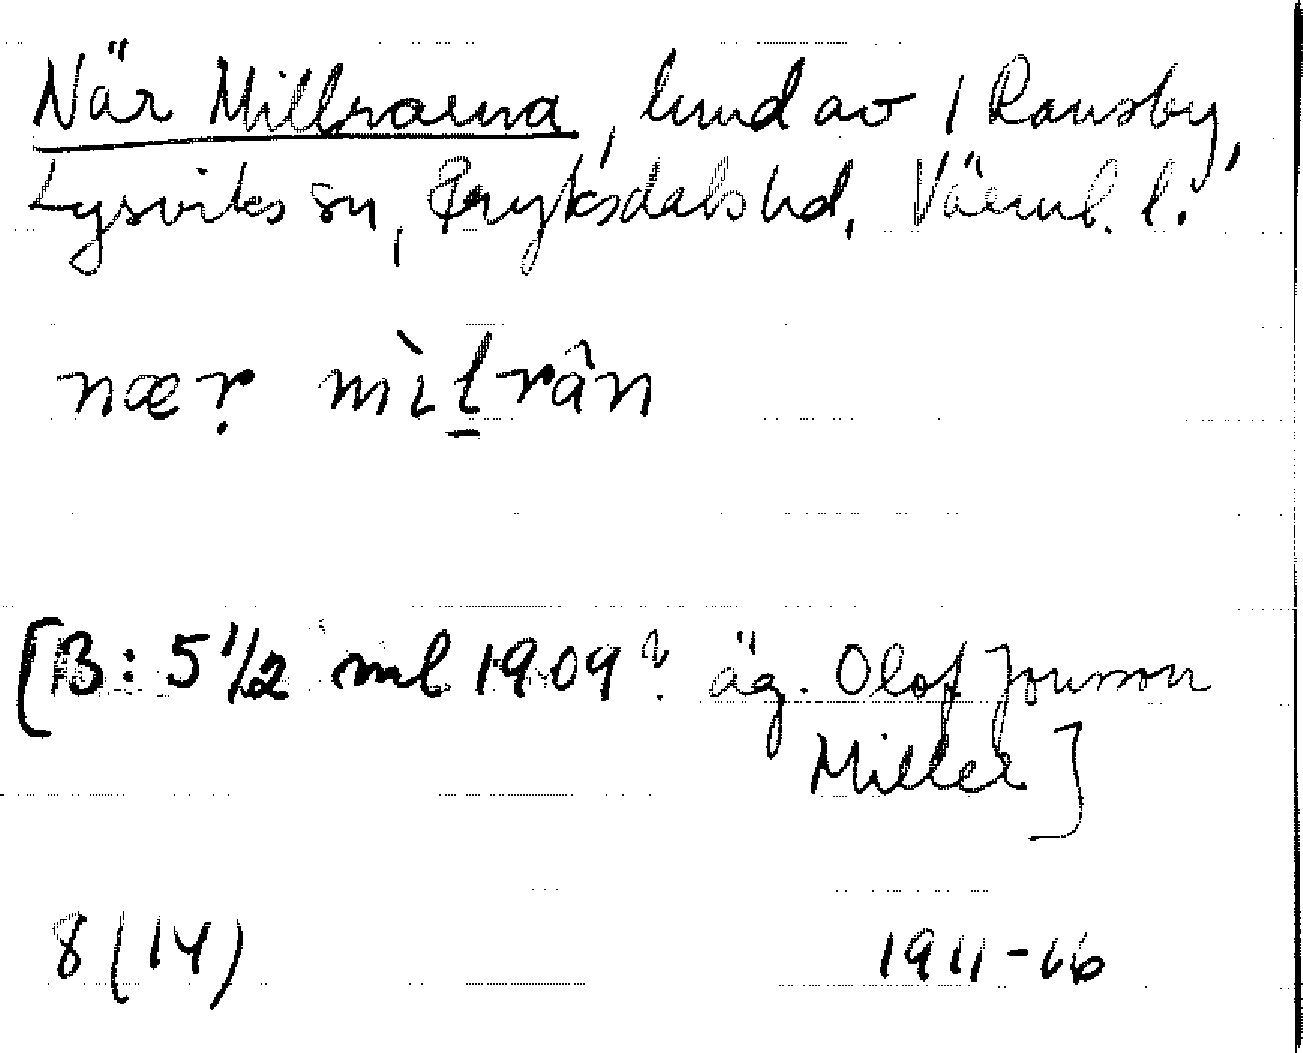 När Millrarna, lund av 1 Ransby,
Lysviks sn, Fryksdals hd, Värml. l.
næṛ mìḻrân
[B: 5 1/2 ml 1909? äg. Olof Jonsson
Miller]
8 (14)
1911-16